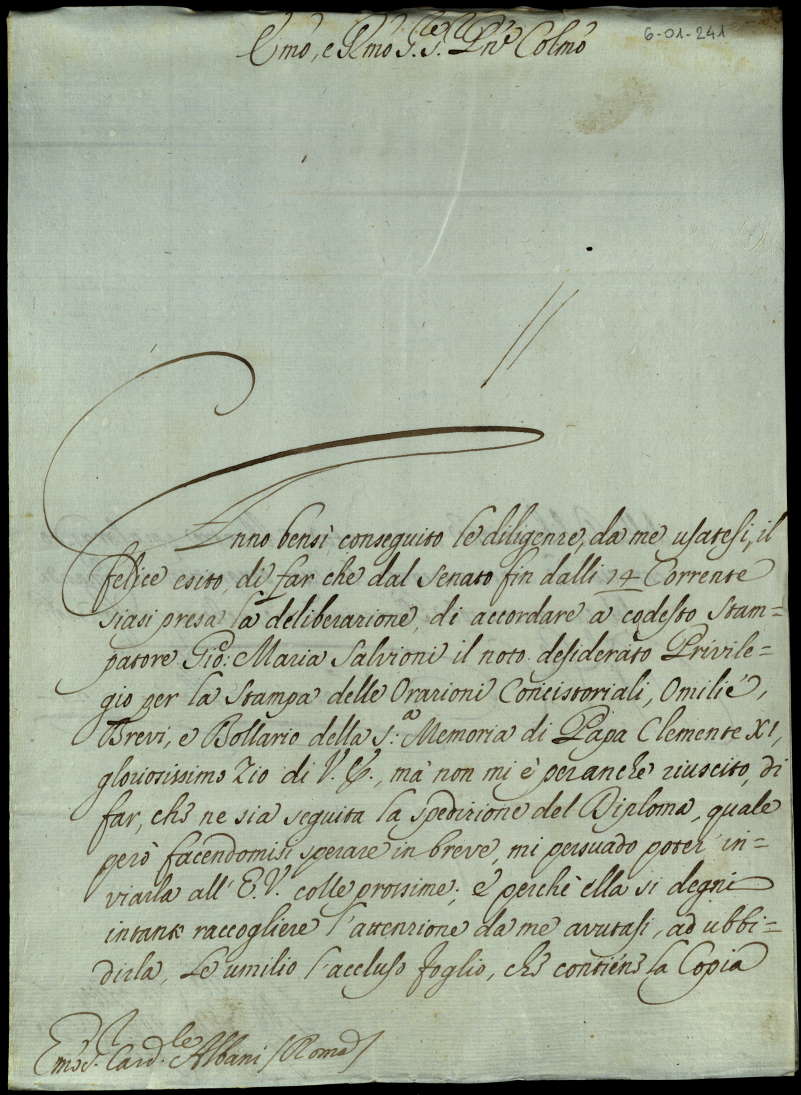 Emo, e Rmo S.r S.r Pne Colmo
6-01-241
Anno bensì conseguito le diligenze, da me usatesi, il
felice esito, di far che dal Senato fin dalli 14 Corrente
siasi presa la deliberazione, di accordare à codesto Stam=
patore Gio: Maria Salvioni il noto desiderato Privile=
gio per la Stampa delle Orazioni Concistoriali, Omilie,
Brevi, e Bollario della S.a Memoria di Papa Clemente XI,
gloriosissimo Zio di V. E., mà non mi è per anche riuscito, di
far, che ne sia seguita la spedizione del Diploma, quale
però facendomisi sperare in breve, mi persuado poter in=
viarla all' E. V. colle prossime; e perchè ella si degni
intanto raccogliere l'attenzione da me avutasi, ad ubbi=
dirla, Le umilio l'accluso foglio, che contiene la Copia
Emo S.r Card.le Albani (Roma)